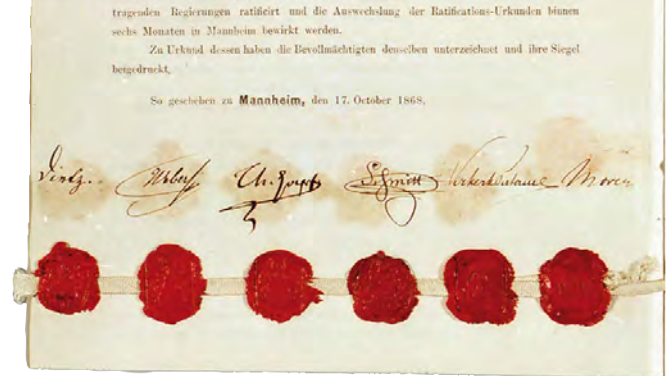 tragenden Regierungen ratificirt und die Auswechslung der Ratifications-Urkunden binnen
sechs Monaten in Mannheim bewirkt werden.
Zu Urkund dessen haben die Bevollmächtigten denselben unterzeichnet und ihre Siegel
beigedruckt.
So geschehen zu Mannheim, den 17. October 1868.
Dietz. Weber Schmitt